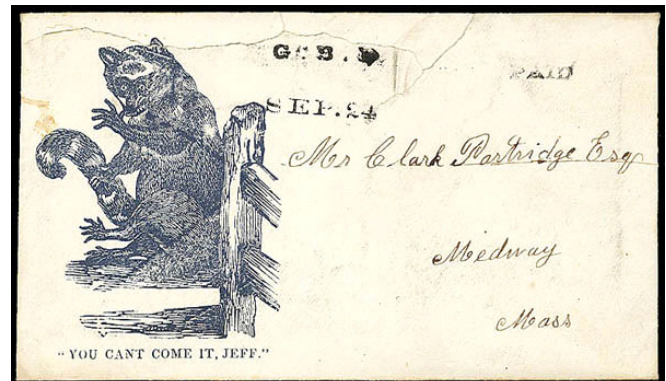 G. B. D.
SEP. 24
PAID
Mr Clark Partridge Esq
Medway
Mass
"YOU CANT COME IT, JEFF."